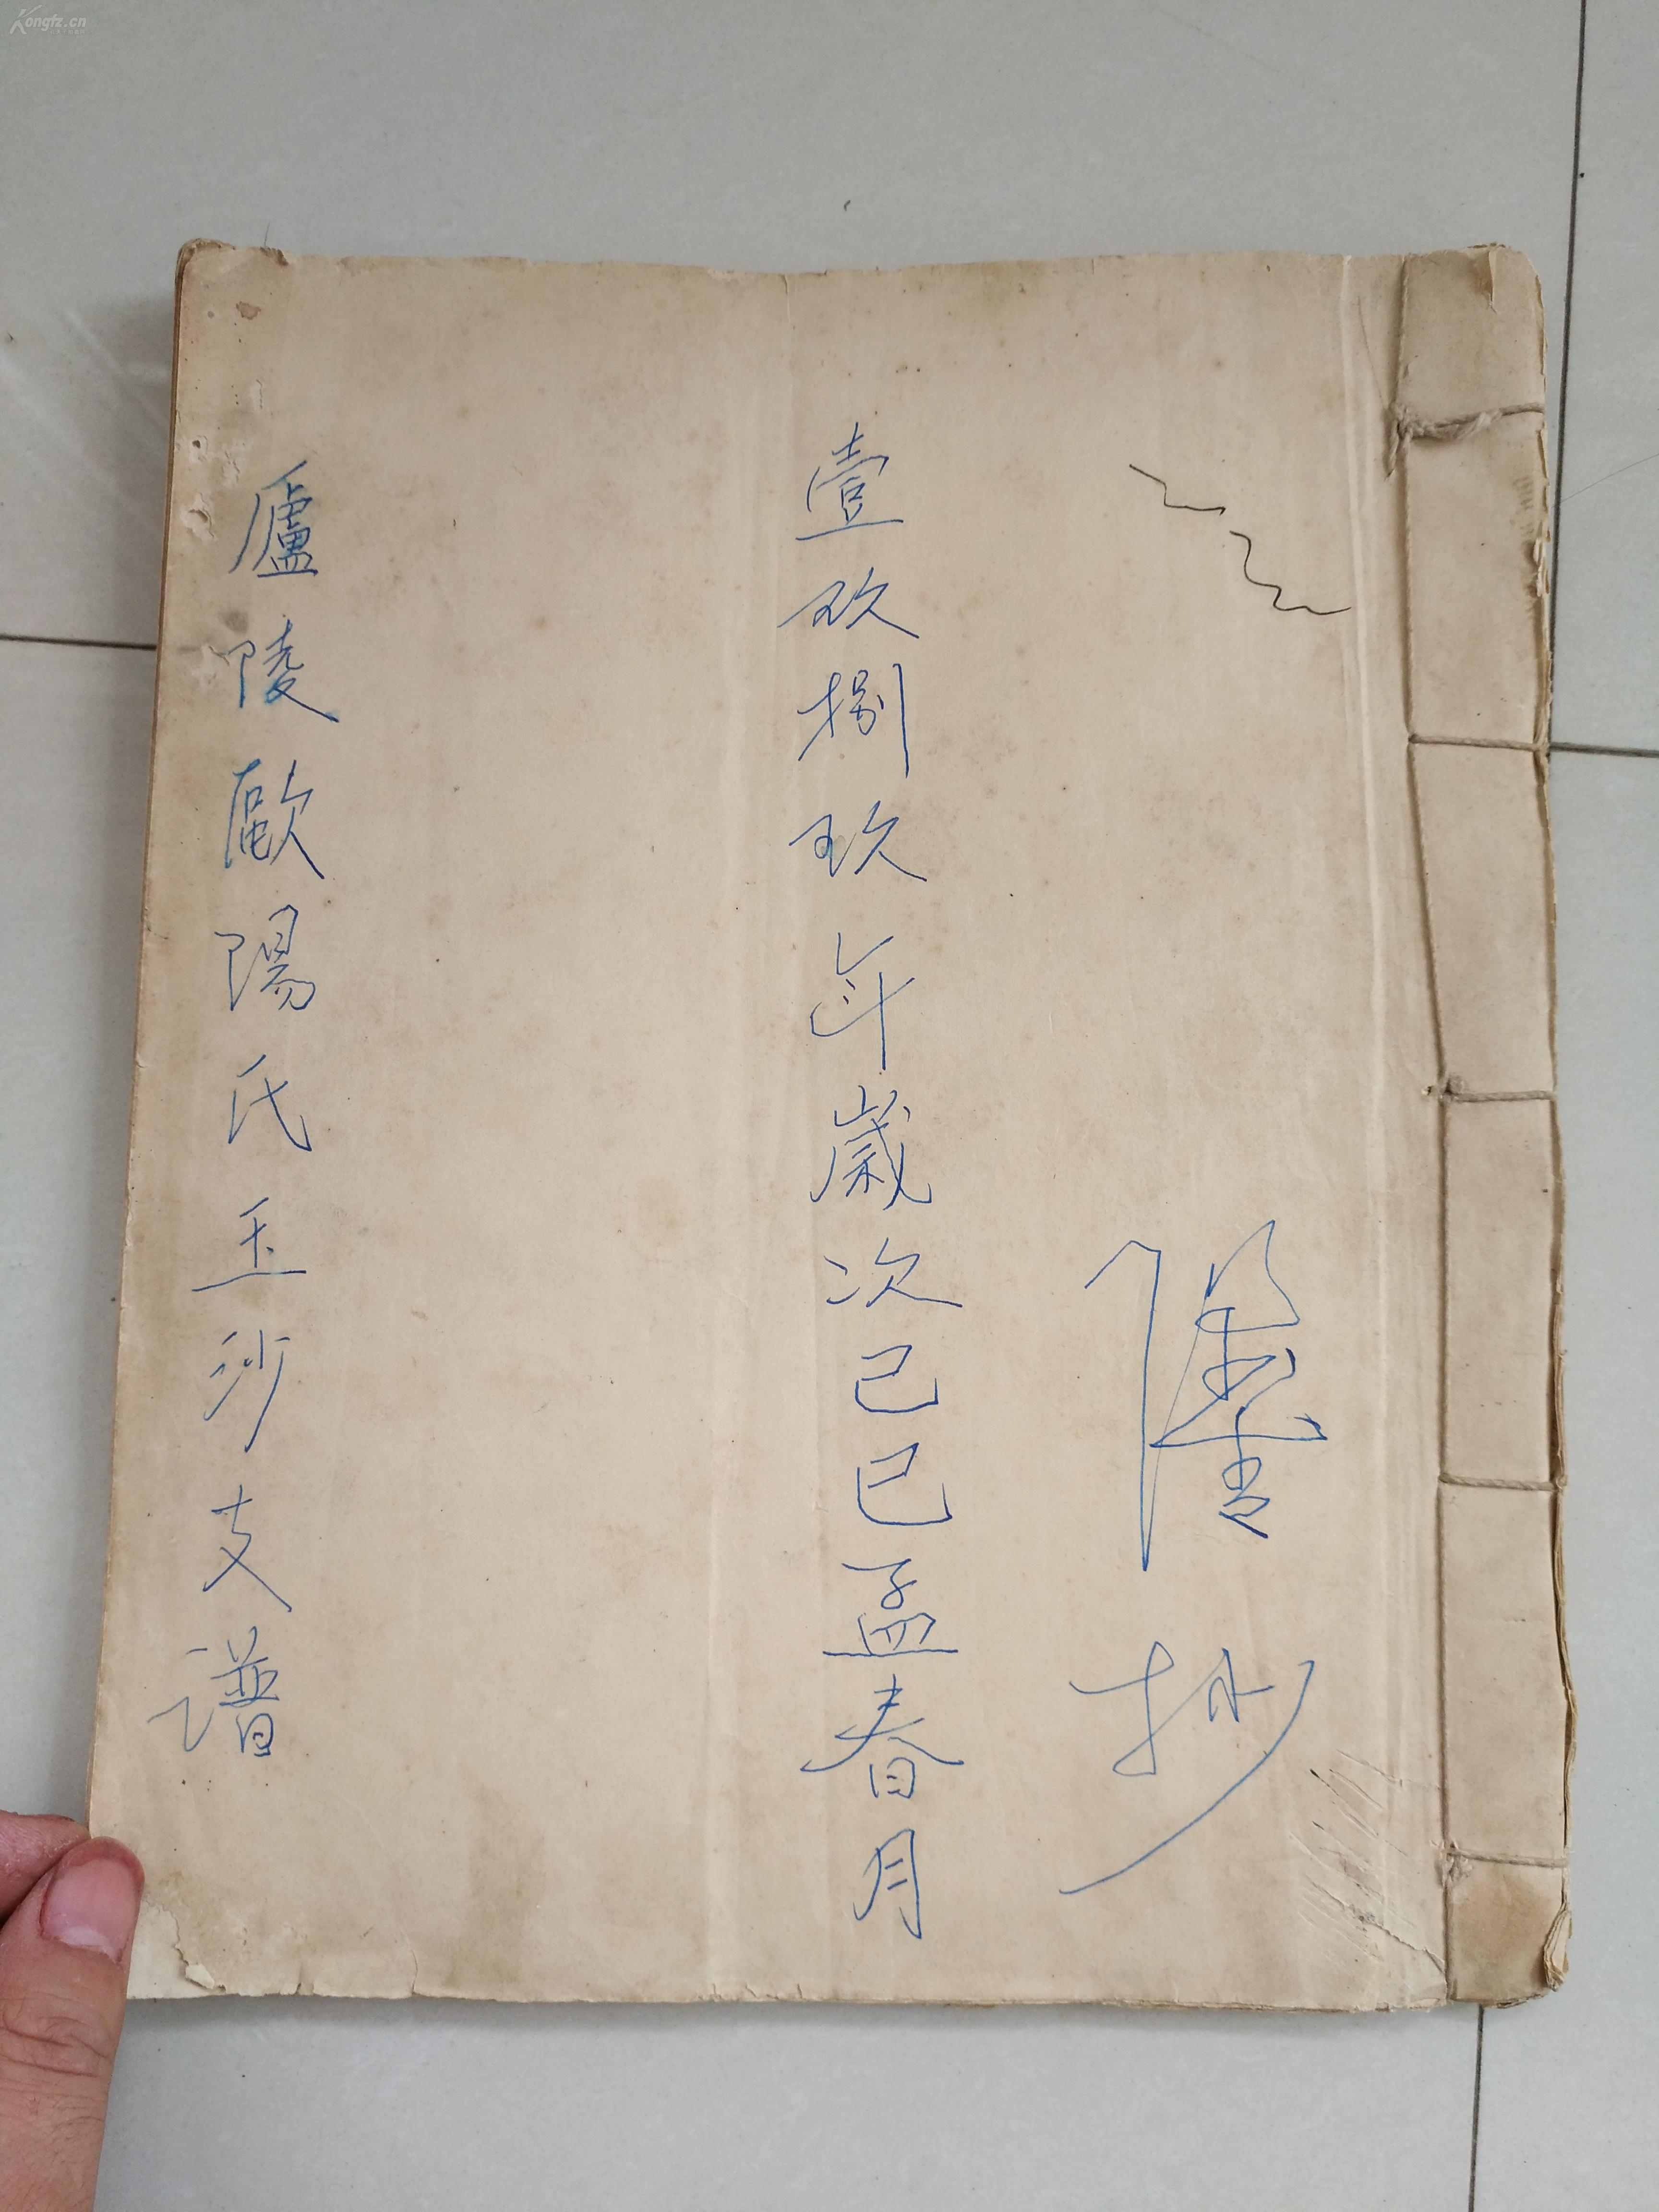 Kongfz.cn
抄
壹玖捌玖年歲次己巳孟春月
廬陵歐陽氏玉沙支譜